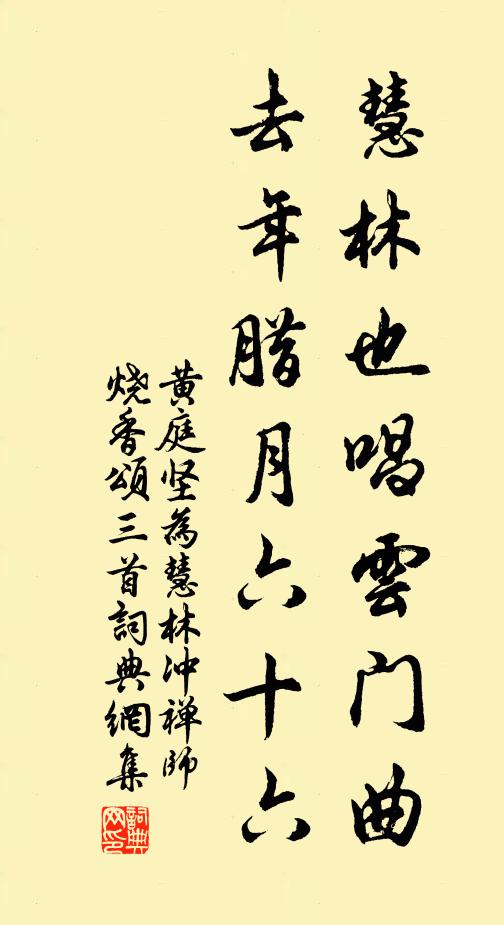 慧林也唱雲门曲
去年腊月六十六
黄庭坚為慧林冲禅師
烧香頌三首詞典網集
詞典
网印